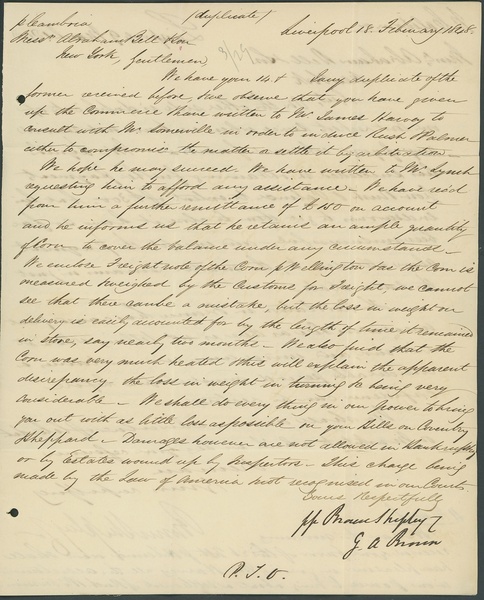 p Cambria (duplicate) Liverpool 18. February 1848.
Messrs Abraham Bell & Son
New York, Gentlemen
We have your 14 & Jany duplicate of the
former received before. We observe that you have given
up the Commerce have written to Mr James Harvey to
consult with Mr Somerville in order to induce Rush & Palmer
either to compromise the matter or settle it by arbitration —
We hope he may succeed. We have written to Mr Lynch
requesting him to afford any assistance — We have rec'd
from him a further remittance of £150 on account
and he informs us that he retains an ample quantity
of Corn to cover the balance under any circumstances —
We enclose Freight note of the Corn p Wellington & as the Corn is
measured & weighed by the Customs for Freight, we cannot
see that there can be a mistake, but the loss in weight on
delivery is easily accounted for by the length of time it remained
in store, say nearly two months — We also find that the
Corn was very much heated & this will explain the apparent
discrepancy — the loss in weight in turning &c being very
considerable — We shall do every thing in our power to bring
you out with as little loss as possible on your Bills on
Sheppard — Damages however are not allowed in Bankruptcy
or by Estates wound up by Inspectors — this charge being
made by the Law of America & not recognised in our Courts.
Yours Respectfully
pp Brown Shipley &
G. A Brown
P. T. O.